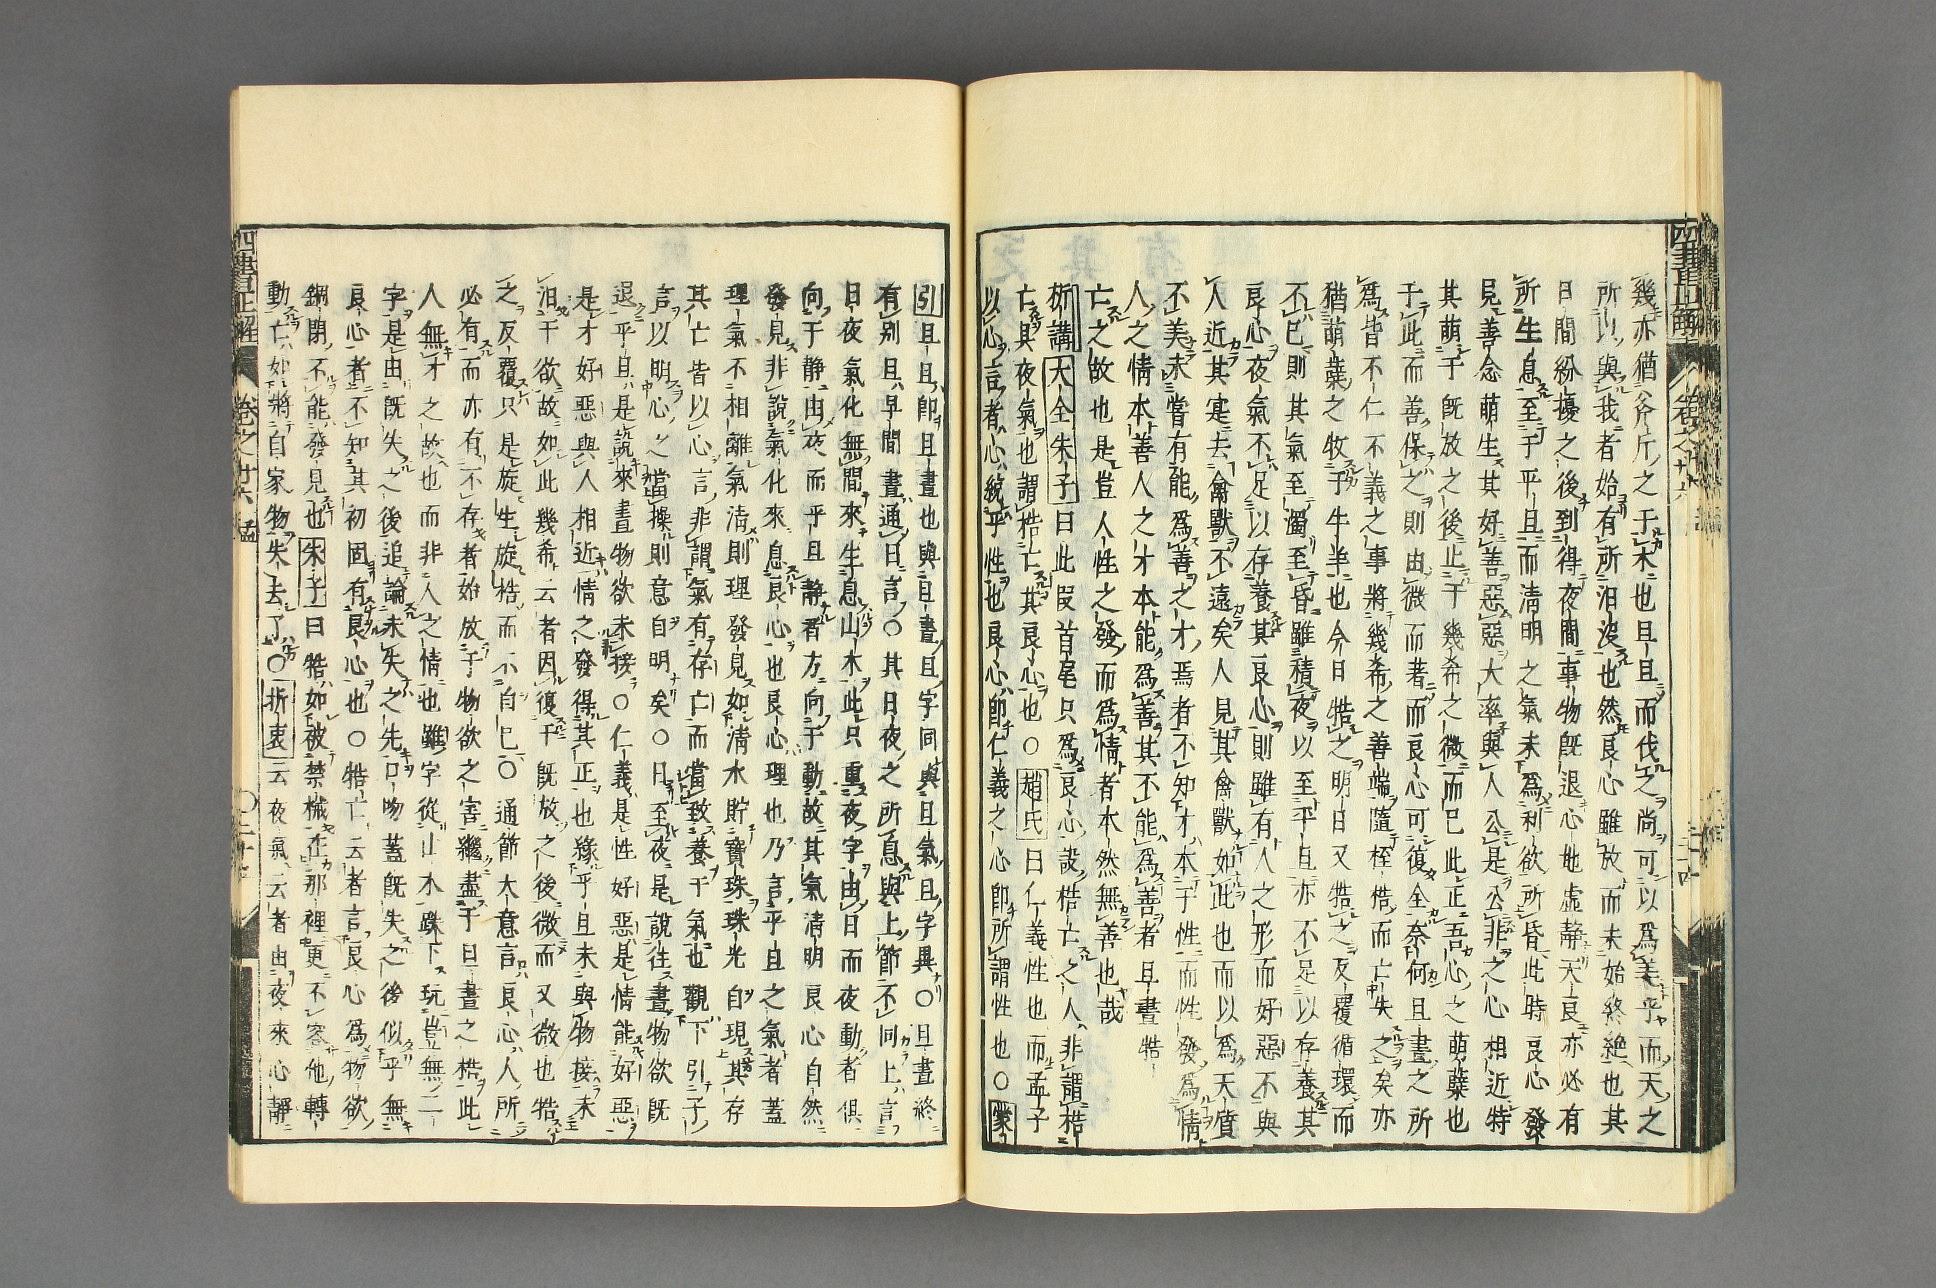 幾亦猶斧斤之于木也旦旦而伐之尚可以為美乎而天之
所以與我者始有所汨沒也然良心雖放而未始終絶也其
日間紛擾之後到得夜間事物既退心地虛靜天良亦必有
所生息至于平旦而清明之氣未為利欲所昏此時良心發
見善念萌生其好善惡惡大率與人公是公非之心相近特
其萌于既放之後止于幾希之微而已此正吾心之萌蘖也
于此而善保之則由微而著而良心可復全奈何旦晝之所
為皆不仁不義之事將幾希之善端隨桎梏而亡失之矣亦
猶萌蘖之牧于牛羊也今日牿之明日又牿之反覆循環而
不已則其氣至濁至昏雖積夜以至平旦亦不足以存養其
良心夜氣不足以存養其良心則雖有人之形而好惡不與
人近其定去禽獸不遠矣人見其禽獸如此也而以為天質
不美未嘗有能為善之才焉者不知才本于性而性發為情
人之情本善人之才本能為善其不能為善者旦晝牿
亡之故也是豈人性之發而為情者本然無善也哉
析講大全朱子曰此段首尾只為良心設梏亡之人非謂梏
亡其夜氣也謂梏亡其良心也○趙氏曰仁義性也而孟子
以心言者心統乎性也良心即仁義之心即所謂性也○蒙
四書正解 卷之廿六
引且旦即旦晝也與旦晝旦字同與旦氣旦字異○旦晝終
有別旦早間晝通日言○其日夜之所息與上節不同上言
日夜氣化無間來生息山木此只重夜字由日而夜動者俱
向于靜由夜而平旦靜者方向于動故其氣清明良心自然
發見非說氣化來息良心也良心理也乃言平旦之氣者蓋
理氣不相離氣清則理發見如清水貯寶珠珠光自現其存
其亡皆以心言非謂氣有存亡而當致養于氣也觀下引孔子
言以明心之當操則意自明矣○日至夜是說往晝物欲既
退平旦是說來晝物欲未接○仁義是性好惡是情能好惡
是才好惡與人相近情之發得其正也緣平旦未與物接未
汨于欲故如此幾希云者因復于既放之後微而又微也牿
之反覆只是旋生旋梏而不自已○通節大意言良心人所
必有而亦有不存者始放于物欲之害繼盡于旦晝之梏此
人無才之故也而非人之情也雖字從山木踩下玩豈無二
字是由既失之後追論未失之先口吻蓋既失之後似乎無
良心者不知其初固有良心也○牿亡云者言良心為物欲
錮閉不能發見也朱子曰牿如被禁械在那裡更不容他轉
動亡如將自家物失去了○折衷云夜氣云者由夜來心靜
四書正解 卷之廿六 孟